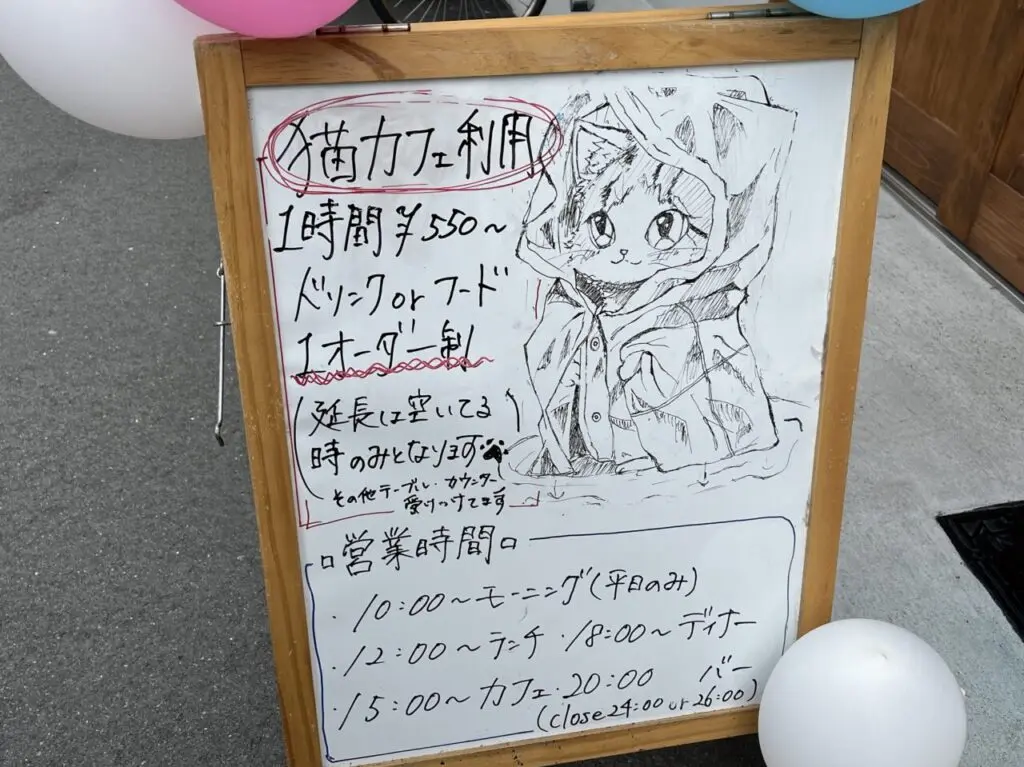 猫カフェ利用
1時間 ¥550~
ドリンク or フード
1オーダー制
(延長は空いてる
時のみとなります)
その他テーブル・カウンター
受けつけてます
営業時間
・10:00~モーニング(平日のみ)
・12:00~ランチ ・18:00~ディナー
・15:00~カフェ ・20:00 バー
(close 24:00 or 26:00)